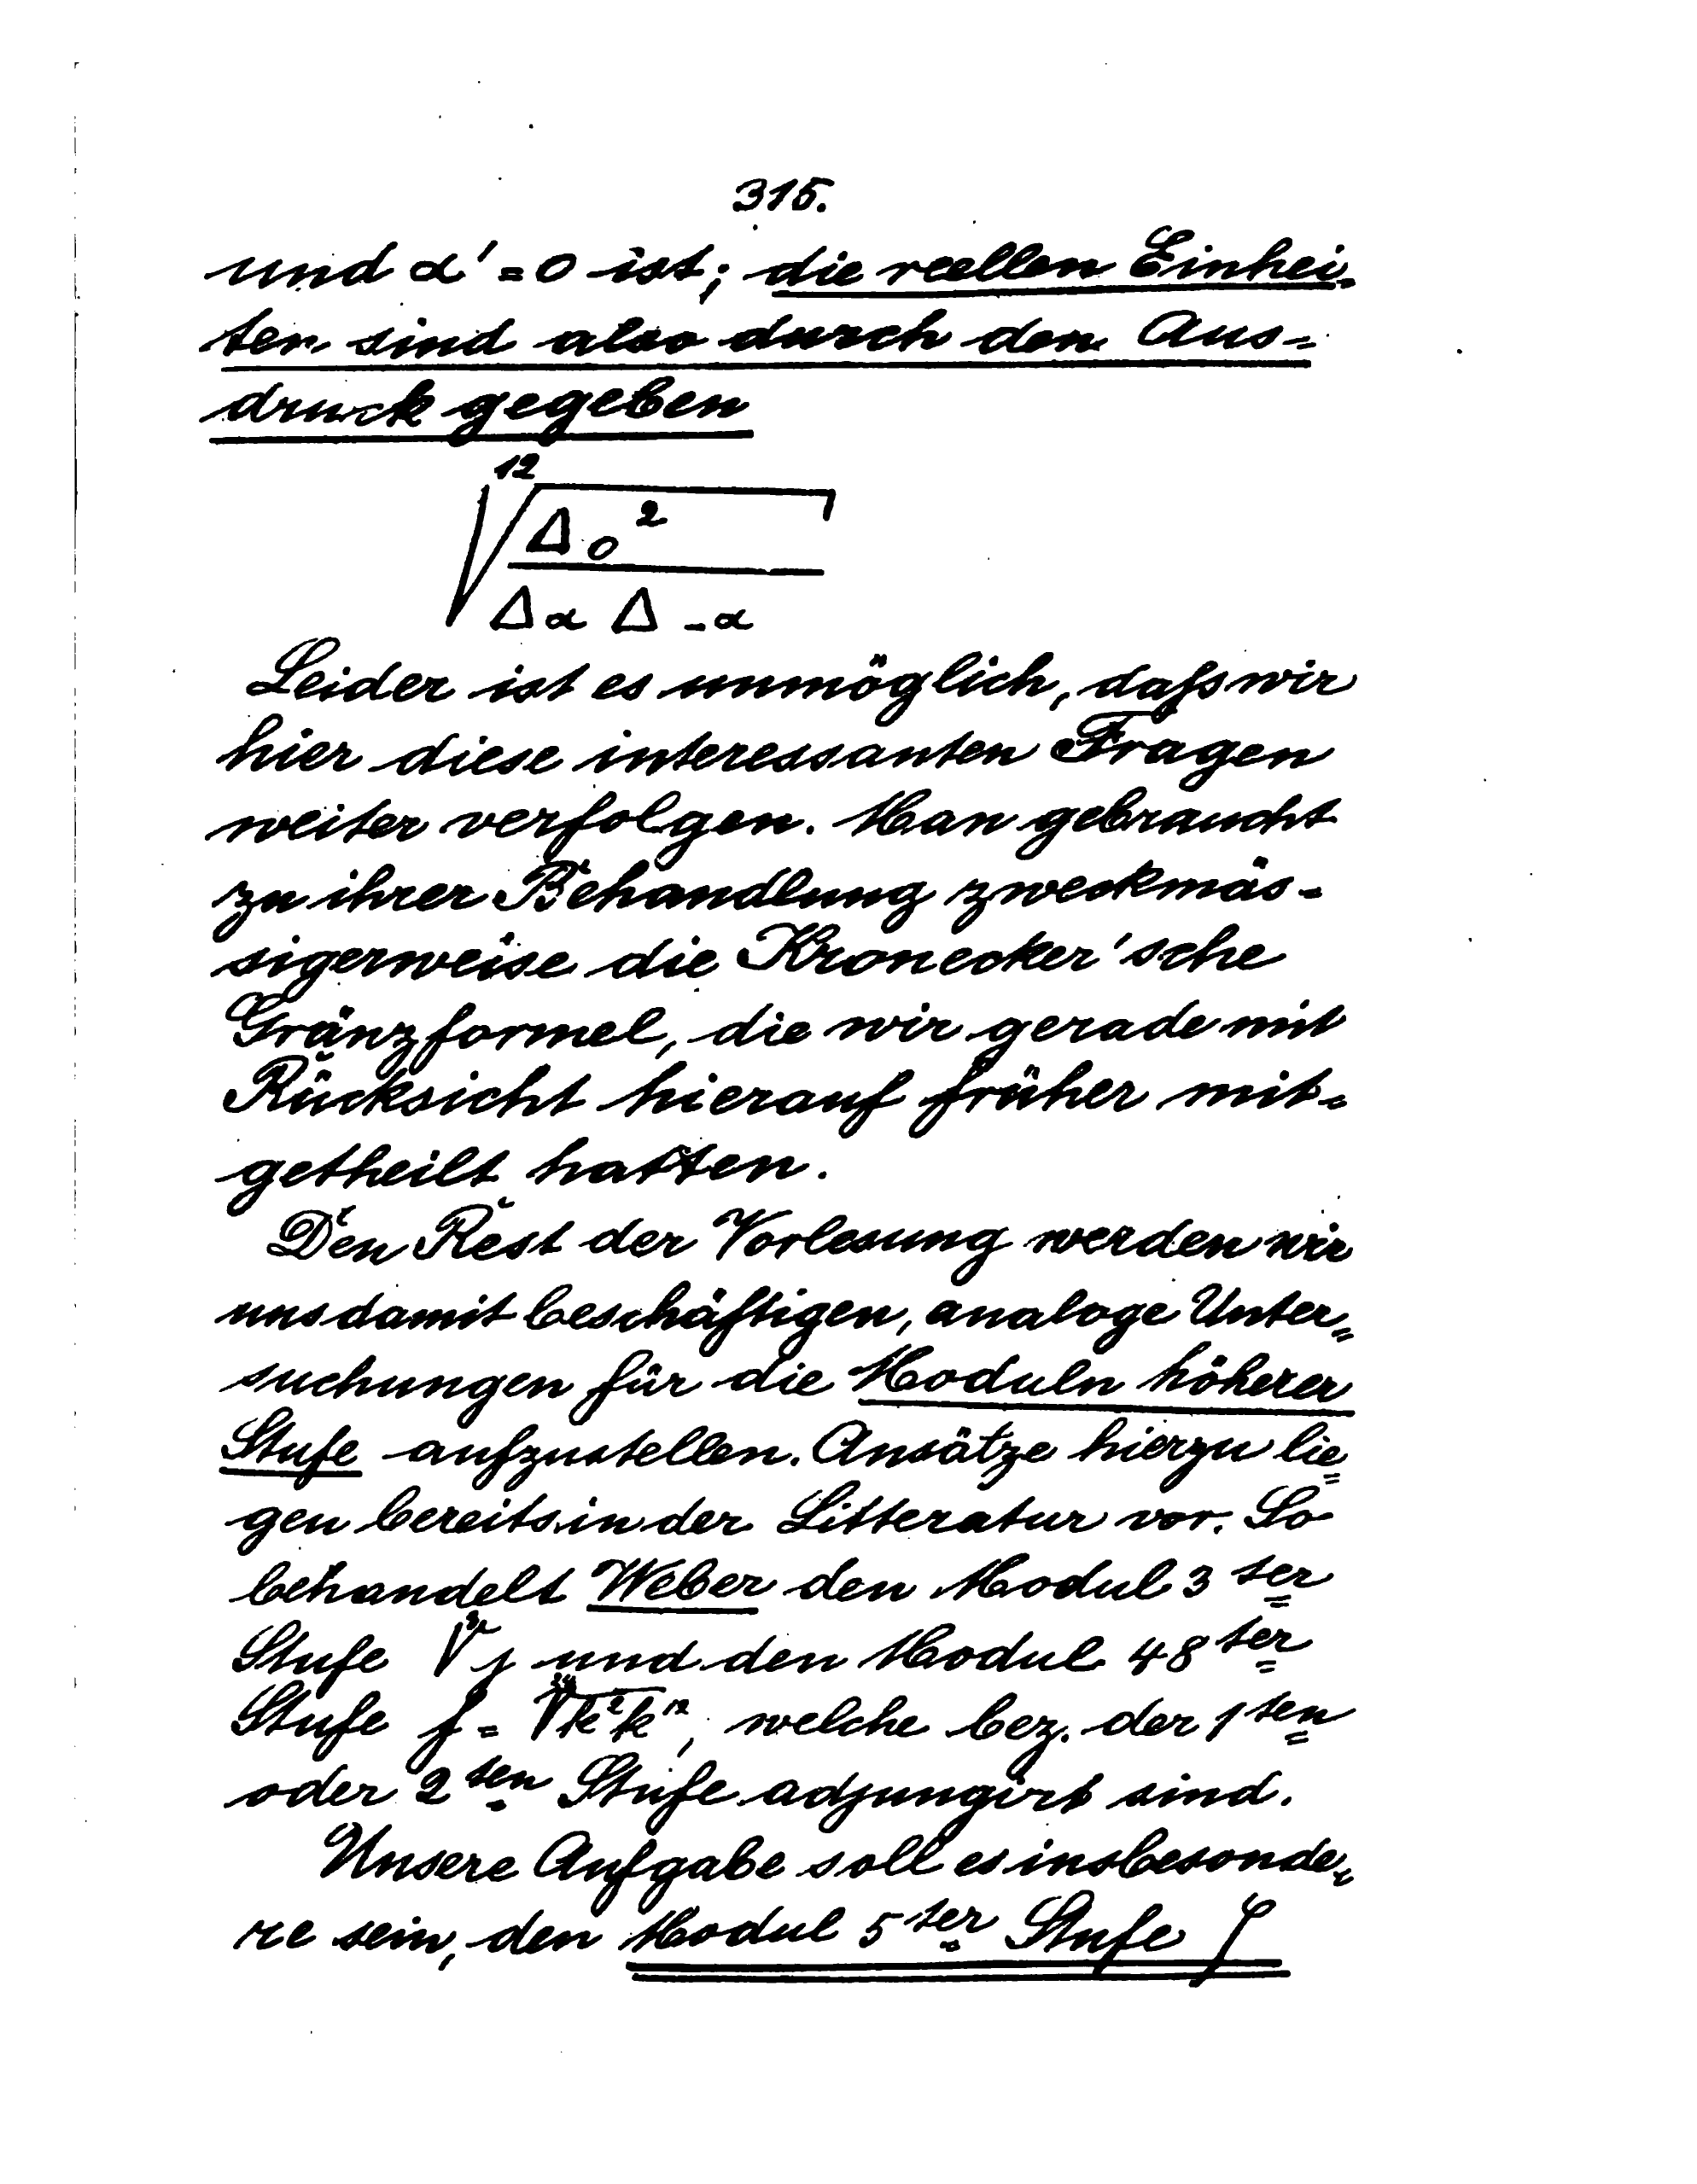 315.
und α' = 0 ist; die reellen Einhei-
ten sind also durch den Aus-
druck gegeben
\sqrt[12]{\frac{Δ_0^2}{Δ_α Δ_{-α}}}
Leider ist es unmöglich, daſs wir
hier diese interessanten Fragen
weiter verfolgen. Man gebraucht
zu ihrer Behandlung zweckmäs-
sigerweise die Kronecker'sche
Gränzformel, die wir gerade mit
Rücksicht hierauf früher mit-
getheilt hatten.
Den Rest der Vorlesung werden wir
uns damit beschäftigen, analoge Unter-
suchungen für die Moduln höherer
Stufe aufzustellen. Ansätze hierzu lie-
gen bereits in der Litteratur vor. So
behandelt Weber den Modul 3ter
Stufe \sqrt[3]{j} und den Modul 48ter
Stufe f = \sqrt[24]{k^2 k'^2}, welche bez. der 1ten
oder 2ten Stufe adjungirt sind.
Unsere Aufgabe soll es insbesonde-
re sein, den Modul 5ter Stufe ζ